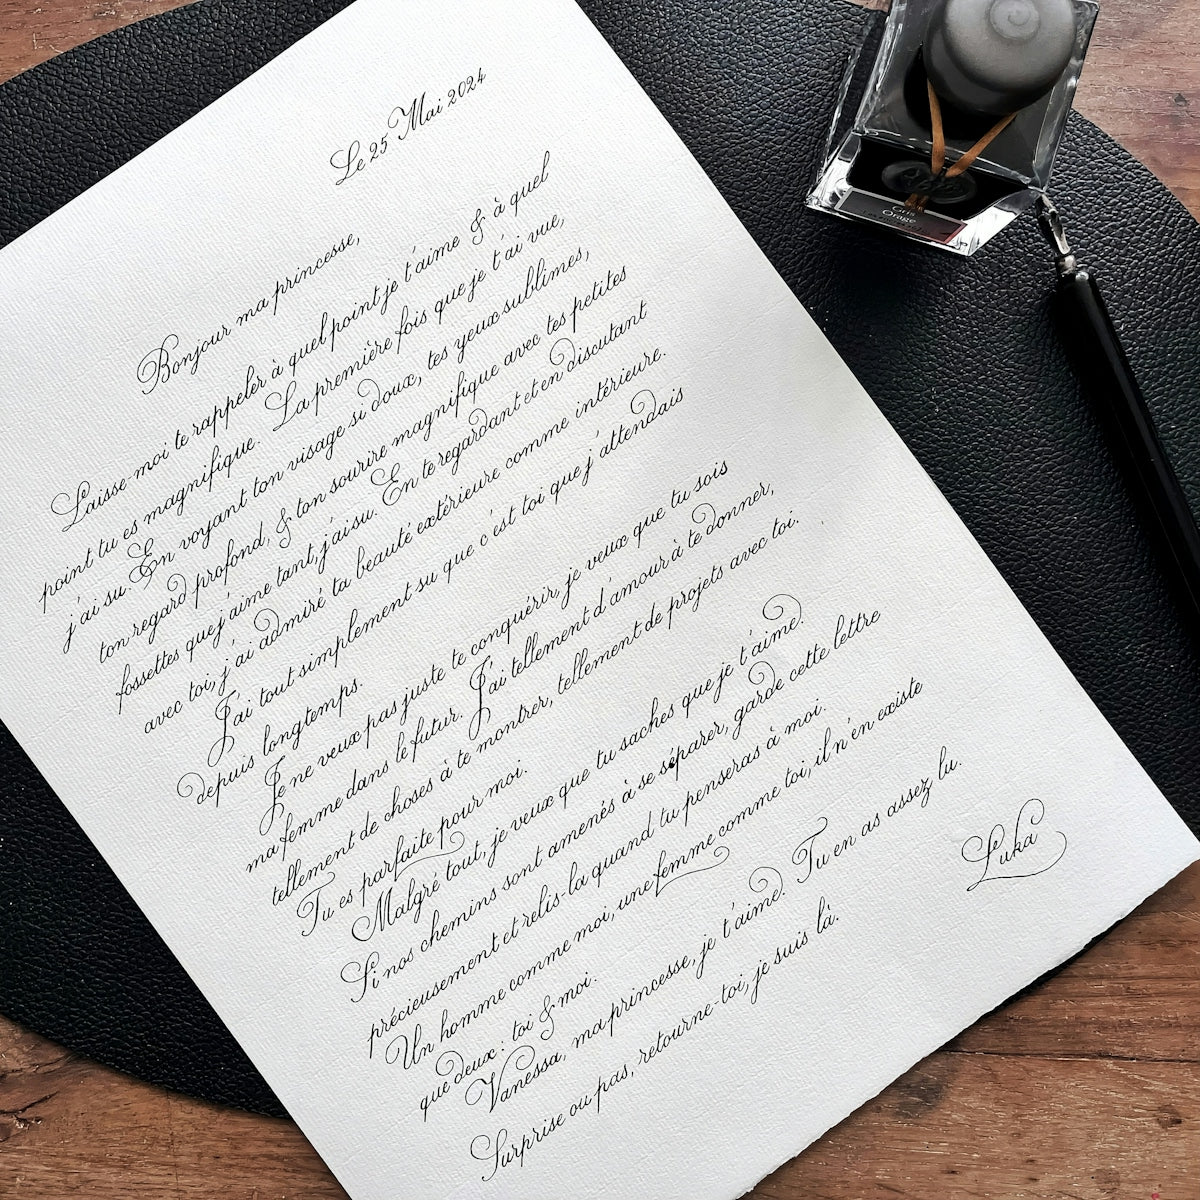 Le 25 Mai 2024
Bonjour ma princesse,
Laisse moi te rappeler à quel point je t'aime & à quel
point tu es magnifique. La première fois que je t'ai vue,
j'ai su. En voyant ton visage si doux, tes yeux sublimes,
ton regard profond, & ton sourire magnifique avec tes petites
fossettes que j'aime tant, j'ai su. En te regardant et en discutant
avec toi, j'ai admiré ta beauté extérieure comme intérieure.
J'ai tout simplement su que c'est toi que j'attendais
depuis longtemps.
Je ne veux pas juste te conquérir, je veux que tu sois
ma femme dans le futur. J'ai tellement d'amour à te donner,
tellement de choses à te montrer, tellement de projets avec toi.
Tu es parfaite pour moi.
Malgré tout, je veux que tu saches que je t'aime.
Si nos chemins sont amenés à se séparer, garde cette lettre
précieusement et relis-la quand tu penseras à moi.
Un homme comme moi, une femme comme toi, il n'en existe
que deux : toi & moi.
Vanessa, ma princesse, je t'aime. Tu en as assez lu.
Surprise ou pas, retourne-toi, je suis là.
Luka
Gris
Orage